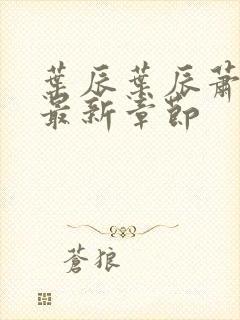 葉辰葉辰蕭
最新章節
蒼狼